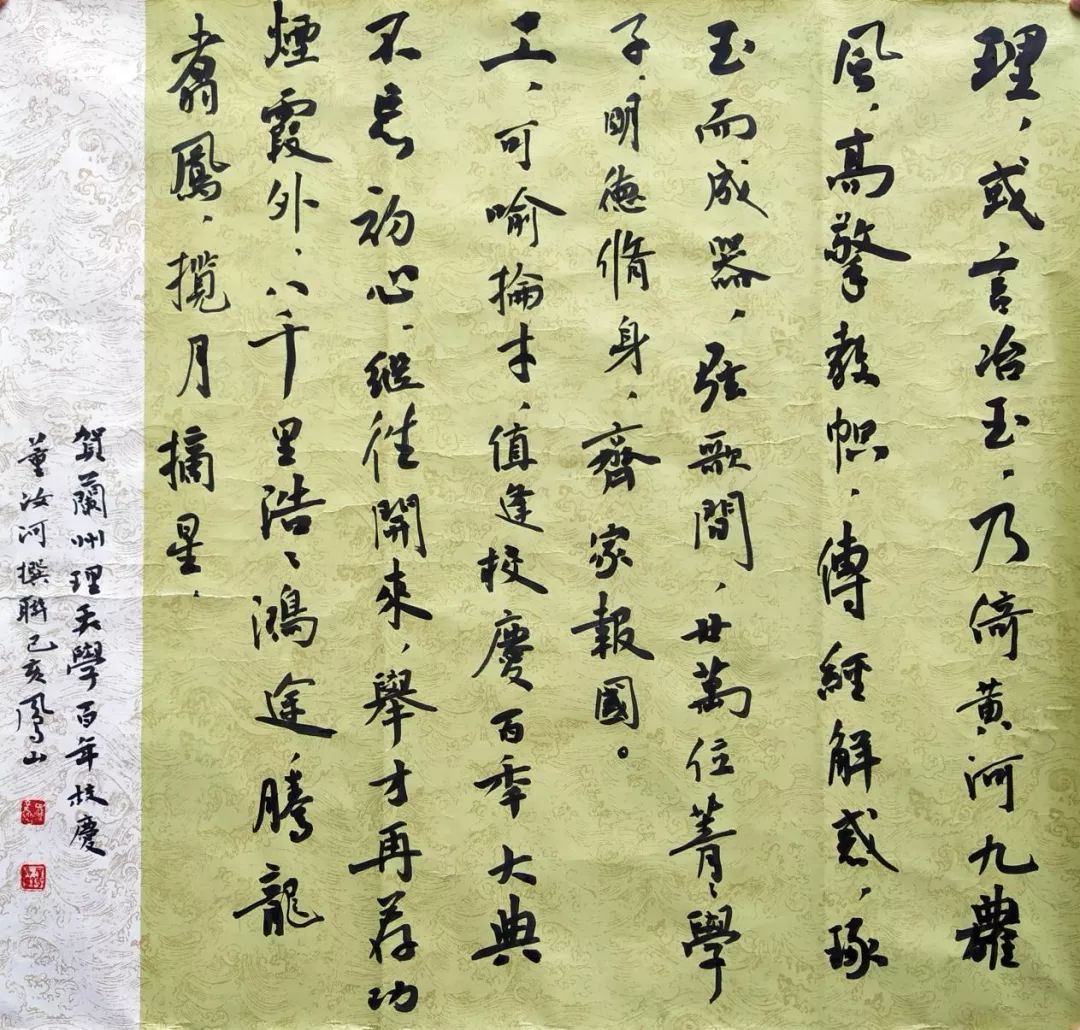 理，或言冶玉，乃倚黄河九
風，高擎教幟，傳經解惑，琢
玉而成器，弦歌間，廿萬位菁〻學
子，明德脩身，齊家報國。
工，可喻掄才，值逢校慶百年大典
不忘初心，継往開來，舉才再荐功
煙霞外，八千里浩〻鴻途，騰龍
翥鳳，攬月摘星，
賀蘭州理工大學百年校慶
董汝河撰聯己亥鳳山